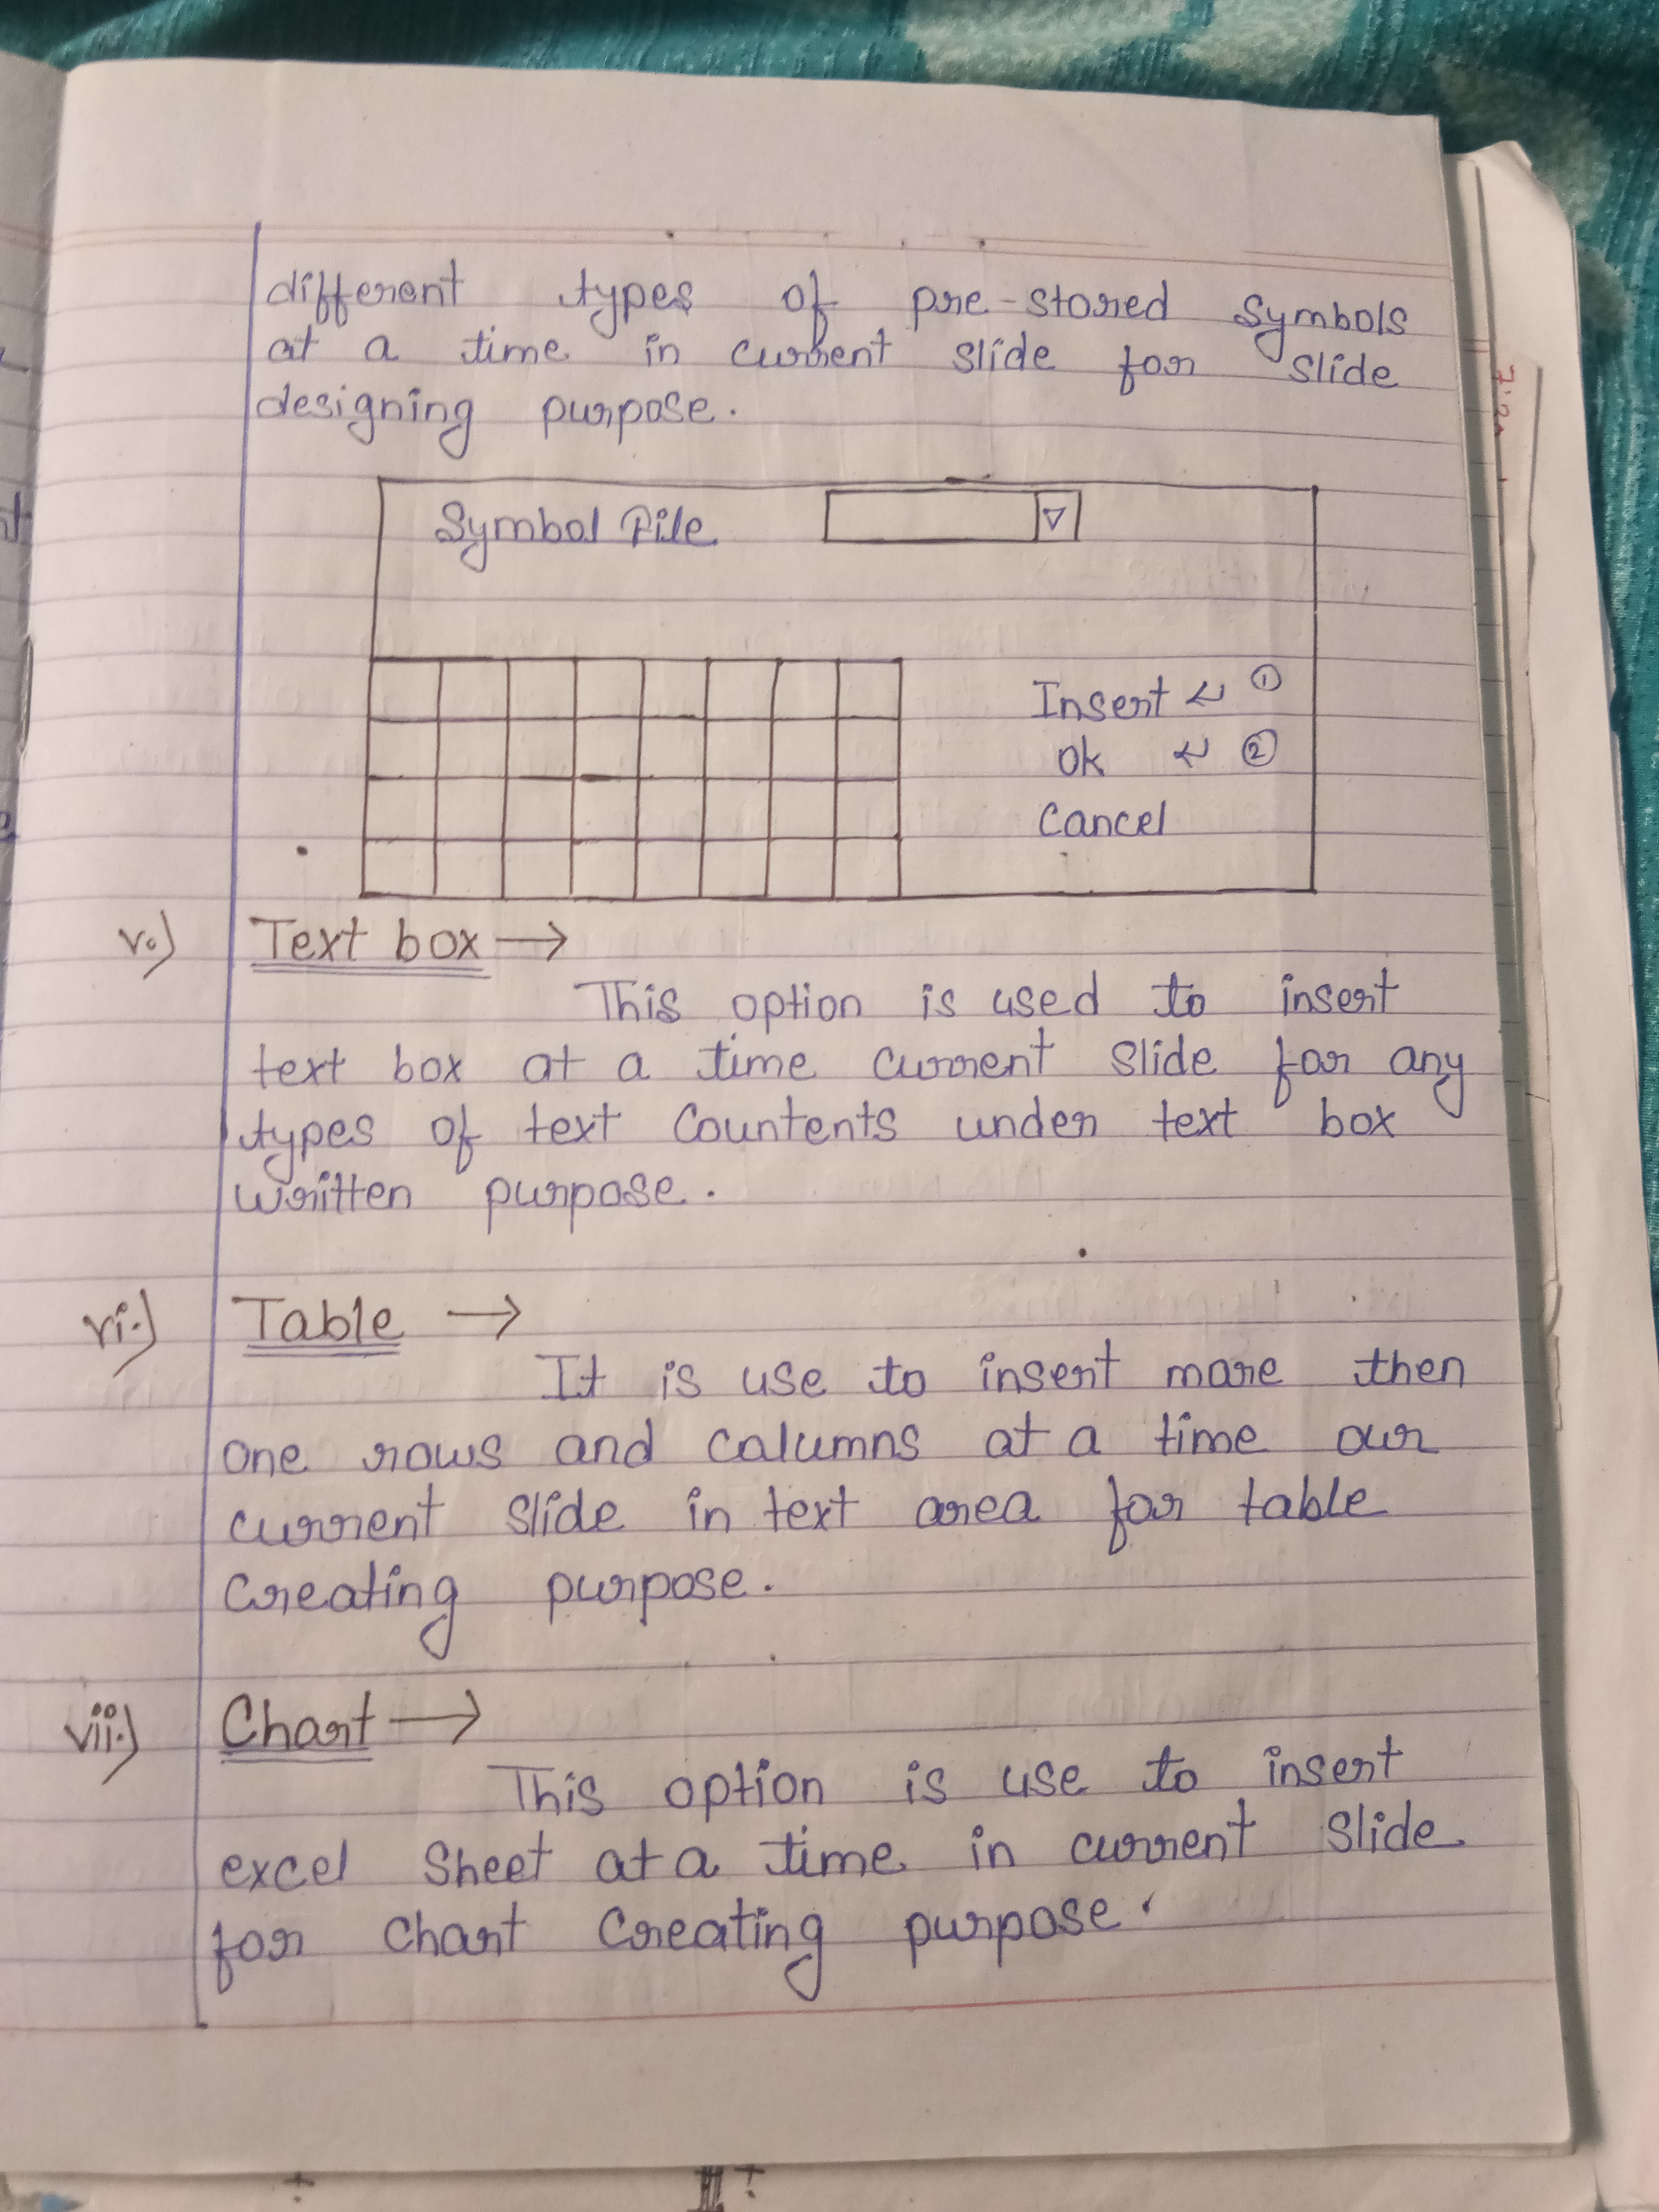 different types of pre-stored symbols
at a time in current slide for slide
designing purpose.
Symbol File
Insert ↵ ①
Ok ↵ ②
Cancel
v.) Text box →
This option is used to insert
text box at a time current slide for any
types of text Countents under text box
written purpose.
vi.) Table →
It is use to insert more then
one rows and columns at a time our
current slide in text area for table
Creating purpose.
vii.) Chart →
This option is use to insert
excel Sheet at a time in current slide
for chart Creating purpose.